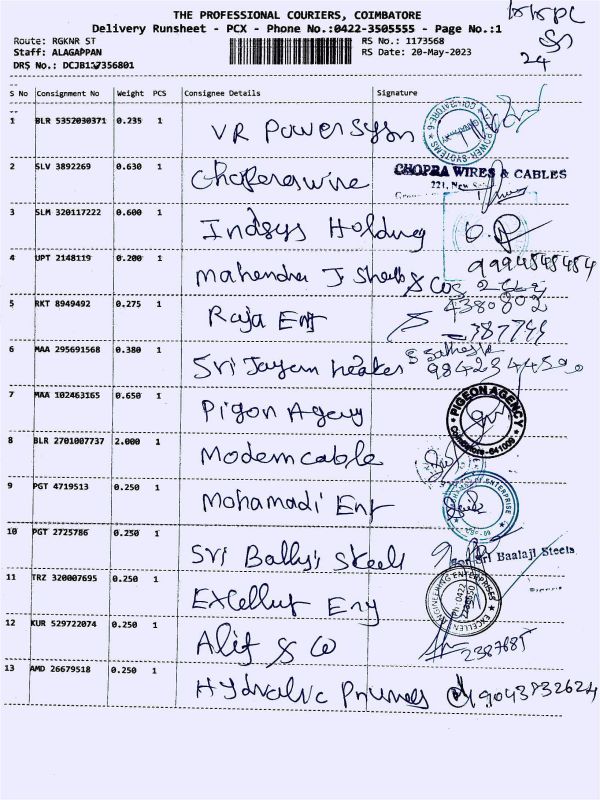 THE PROFESSIONAL COURIERS, COIMBATORE
Delivery Runsheet - PCX - Phone No.:0422-3505555 - Page No.:1
Route: RGKNR ST RS No.: 1173568
Staff: ALAGAPPAN RS Date: 20-May-2023
DRS No.: DCJB137356801
24
S No Consignment No Weight PCS Consignee Details Signature
1 BLR 5352030371 0.235 1 VR Power Sysm
2 SLV 3892269 0.630 1 Chopera wire CHOPRA WIRES & CABLES
221, New
3 SLM 320117222 0.600 1 Indsys Holding
4 UPT 2148119 0.200 1 Mahendra J Sheth & Cos
5 RKT 8949492 0.275 1 Raja Ent 4380802
6 MAA 295691568 0.380 1 Sri Jayam heater
7 MAA 102463165 0.650 1 Pigon Agency PIGEON AGENCY
Coimbatore-641009
8 BLR 2701007737 2.000 1 Modern cable
9 PGT 4719513 0.250 1 Mohamadi Ent ENTERPRISE
10 PGT 2725786 0.250 1 Sri Ballyi Steels Sri Baalaji Steels
11 TRZ 320007695 0.250 1 Excellut Eng EXCELLENT ENGINEERING ENTERPRISES
12 KUR 529722074 0.250 1 Alif & Co 2387685
13 AMD 26679518 0.250 1 Hydralic Prumes 9043832624